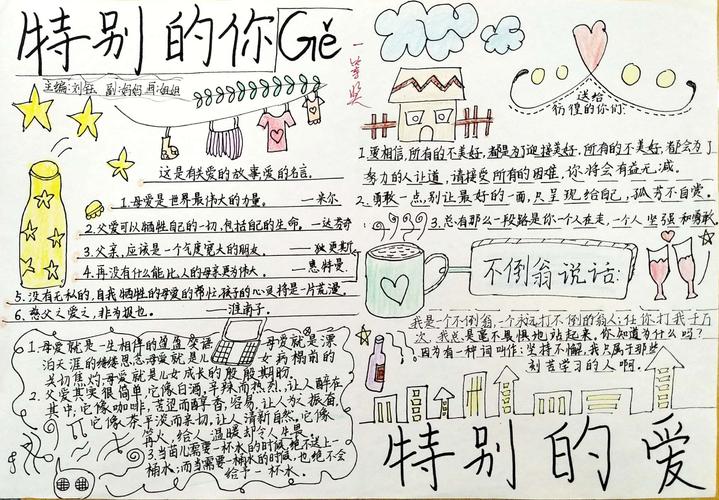 特别的你Gě
一等奖
主编:刘钰 副:妈妈
送给
彷徨的你们:
这是有关爱的故事爱的名言.
1.母爱是世界最伟大的力量. ——米尔
2.父爱可以牺牲自己的一切,包括自己的生命。—达芬奇
3.父亲,应该是一个气度宽大的朋友. ——狄更斯
4.再没有什么能比人的母亲更为伟大. ——惠特曼.
5.没有无私的,自我牺牲的母爱的帮忙,孩子的心灵将是一片荒漠.
6.慈父之爱子,非为报也. ——淮南子.
1.要相信,所有的不美好,都是为了迎接美好,所有的不美好,都会为了
努力的人让道,请接受所有的困难,你将会有益无减.
2.勇敢一点,别让最好的一面,只呈现给自己,孤芳不自赏.
3.总有那么一段路是你一个人在走,一个人坚强和勇敢.
不倒翁说话:
我是一个不倒翁,一个永远打不倒的翁人;任你打我千万
次,我总是毫不畏惧地站起来,你知道为什么吗?
因为有一种词叫作:坚持不懈,我只属于那些
刻苦学习的人啊.
1.母爱就是一生相伴的盈盈笑语 母爱就是漂
泊天涯的缕缕思念母爱就是儿女病榻前的
关切焦灼母爱就是儿女成长的殷殷期盼.
2.父爱其实很简单,它像白酒,辛辣而热烈,让人醉在
其中,它像咖啡,苦涩而醇香,容易让人为之振奋,
它像茶,平淡而亲切,让人清新自然,它像
火,给人
3.当苗儿需要一杯水的时候,绝不送上一
桶水;而当需要一桶水的时候,也绝不会
给予一杯水.
特别的爱